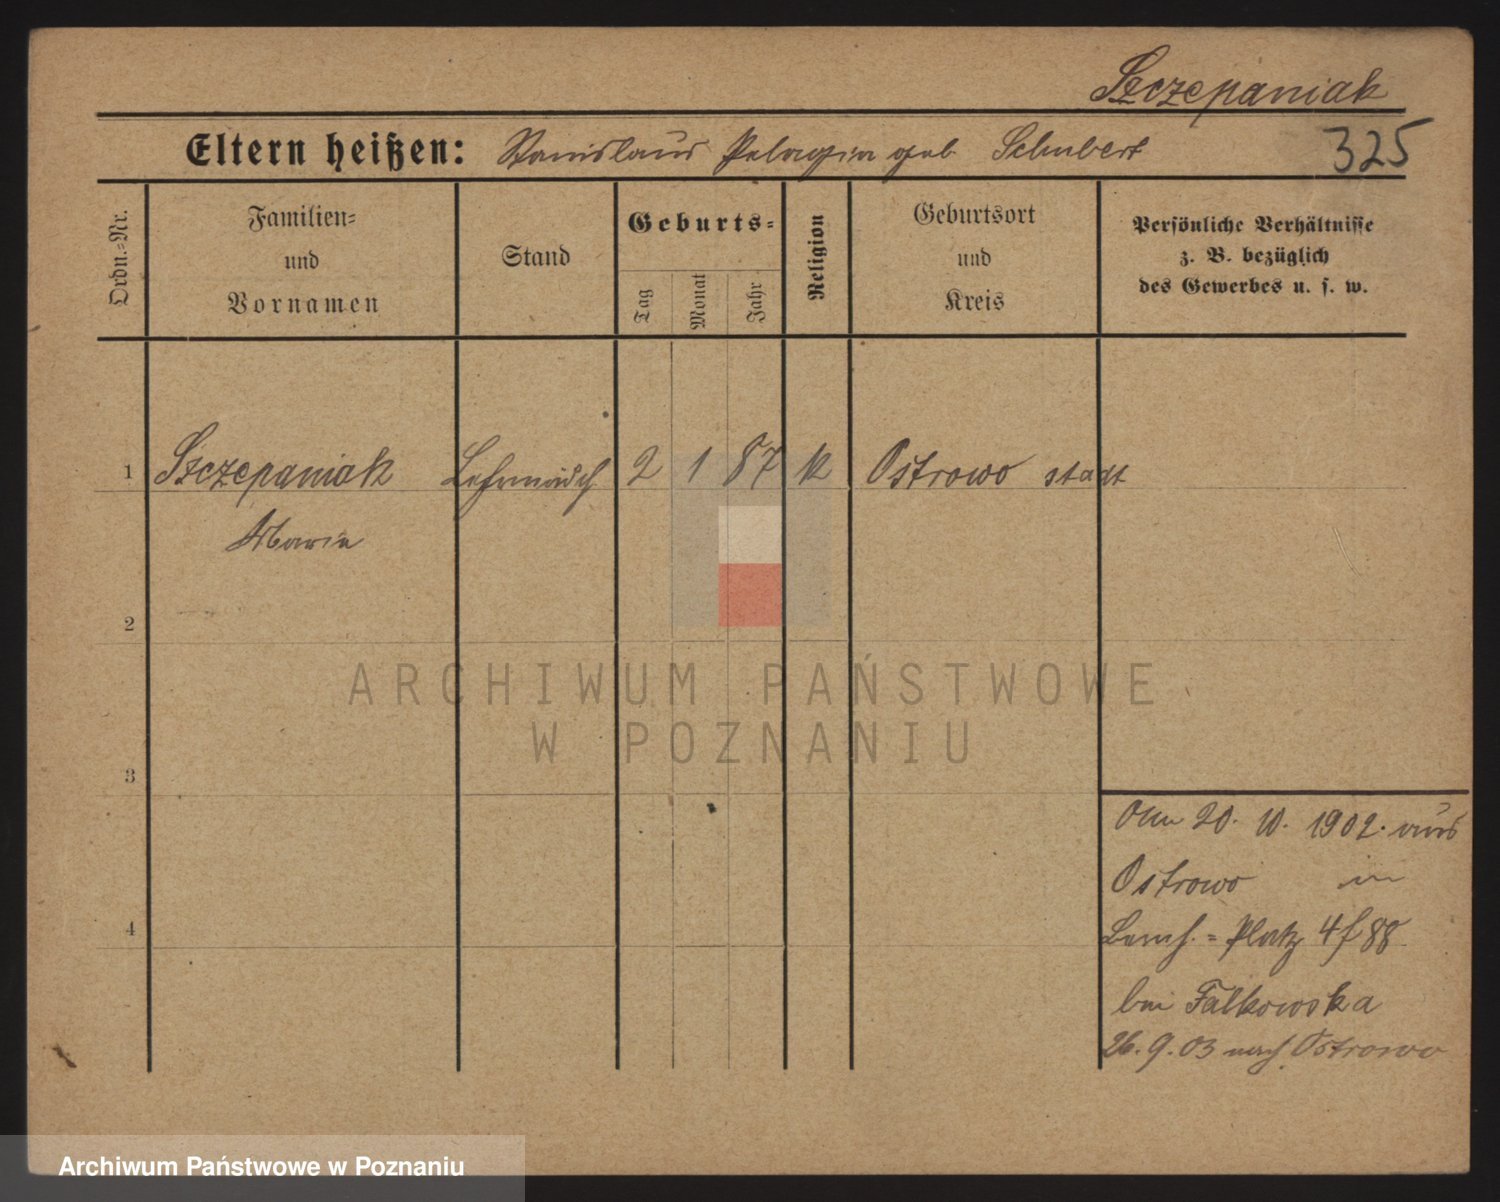 Szczepaniak
Eltern heißen: Stanislaus Pelagia geb Schubert 325
Ordn.=Nr.
Familien=
und
Vornamen
Stand
Geburts=
Tag
Monat
Jahr
Religion
Geburtsort
und
Kreis
Persönliche Verhältnisse
z. B. bezüglich
des Gewerbes u. s. w.
1 Szczepaniak Lehrmädch 2 1 87 k Ostrowo stadt
Maria
2
3
4
20. 10. 1902. aus
Ostrowo in
Platz 4 88
bei Falkowska
26. 9. 03 nach Ostrowo
ARCHIWUM PAŃSTWOWE
W POZNANIU
Archiwum Państwowe w Poznaniu